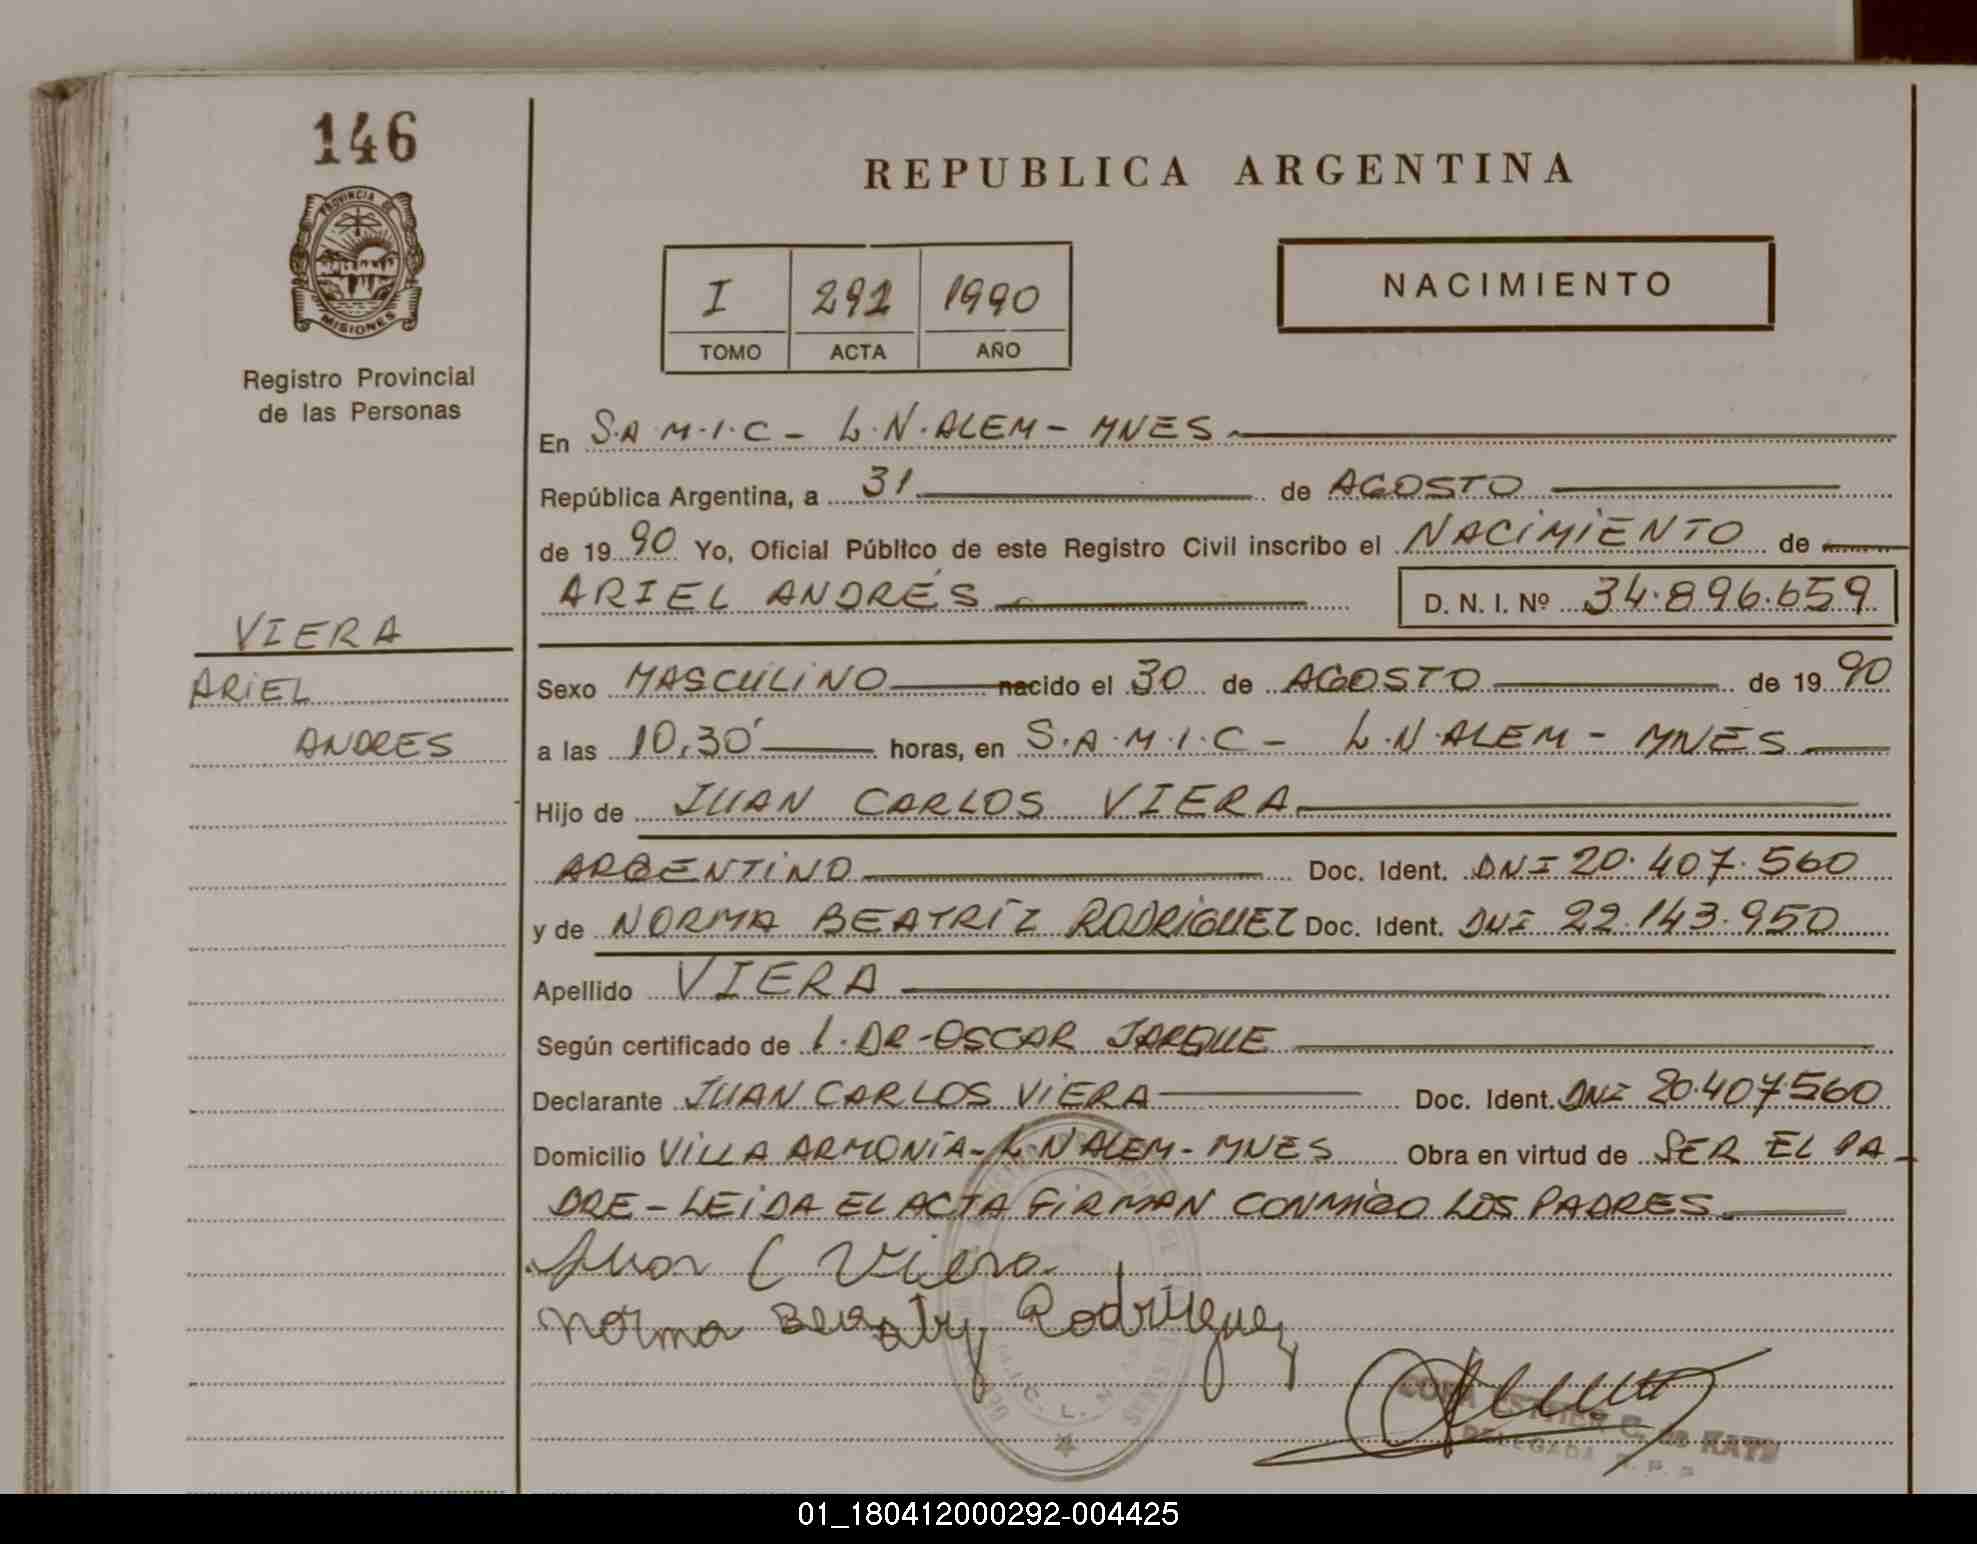 146
PROVINCIA DE
MISIONES
Registro Provincial
de las Personas
VIERA
ARIEL
ANDRES
REPUBLICA ARGENTINA
I 292 1990
TOMO ACTA AÑO
NACIMIENTO
En S.A.M.I.C - L.N.ALEM - MNES
República Argentina, a 31 de AGOSTO
de 1990 Yo, Oficial Público de este Registro Civil inscribo el NACIMIENTO de
ARIEL ANDRÉS D. N. I. Nº 34.896.659
Sexo MASCULINO nacido el 30 de AGOSTO de 1990
a las 10,30' horas, en S.A.M.I.C - L.N.ALEM - MNES
Hijo de JUAN CARLOS VIERA
ARGENTINO Doc. Ident. DNI 20.407.560
y de NORMA BEATRÍZ RODRÍGUEZ Doc. Ident. DNI 22.143.950
Apellido VIERA
Según certificado de 1. DR-OSCAR JARQUE
Declarante JUAN CARLOS VIERA Doc. Ident. DNI 20.407.560
Domicilio VILLA ARMONÍA - L.N ALEM - MNES Obra en virtud de SER EL PA-
DRE - LEIDA EL ACTA FIRMAN CONMIGO LOS PADRES
Juan C Viera
Norma Beatriz Rodriguez
ESTHER C. de
DELEGADA R. P. P.
01_180412000292-004425